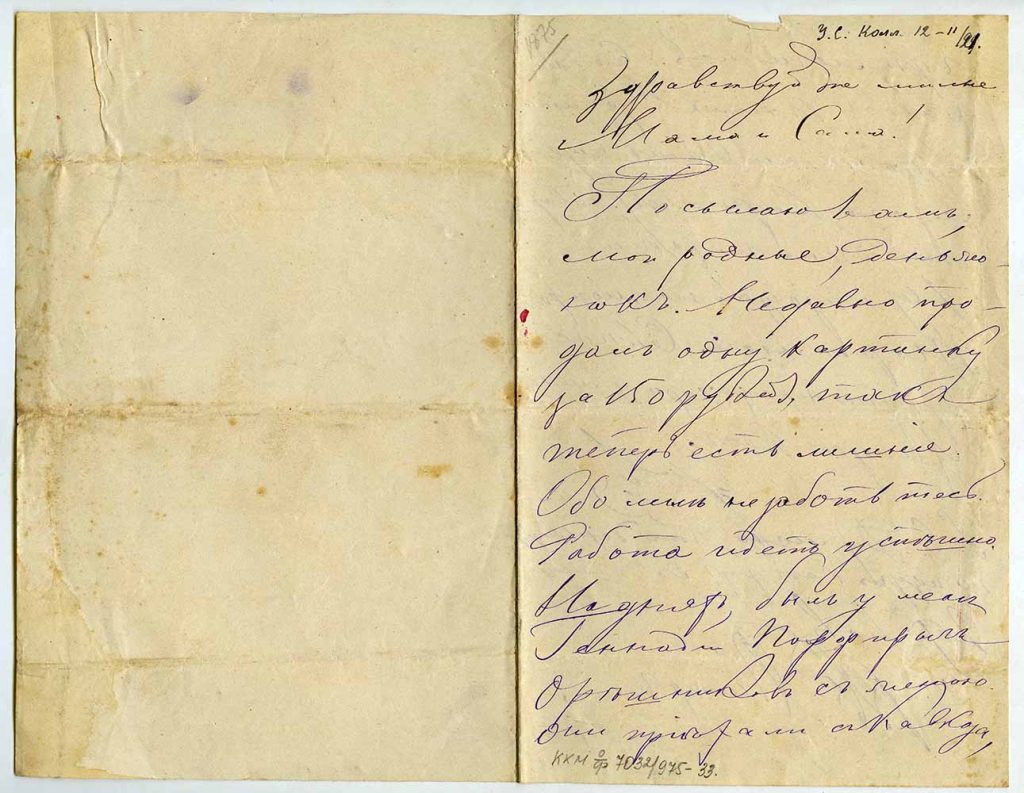 1875
З.С. Колл. 12-11/21.
Здравствуйте милые
Мама и Саша!
Посылаю Вамъ,
мои родные, деньжо-
нокъ. Недавно про-
далъ одну картинку
за 150 рублей, такъ
теперь есть лишніе.
Обо мнѣ не заботьтесь.
Работа идетъ успѣшно.
На дняхъ былъ у меня
Геннадій Порфирычъ
съ женою.
Они пріѣхали съ Кавказа,
ККМ оф 7032/975-33.